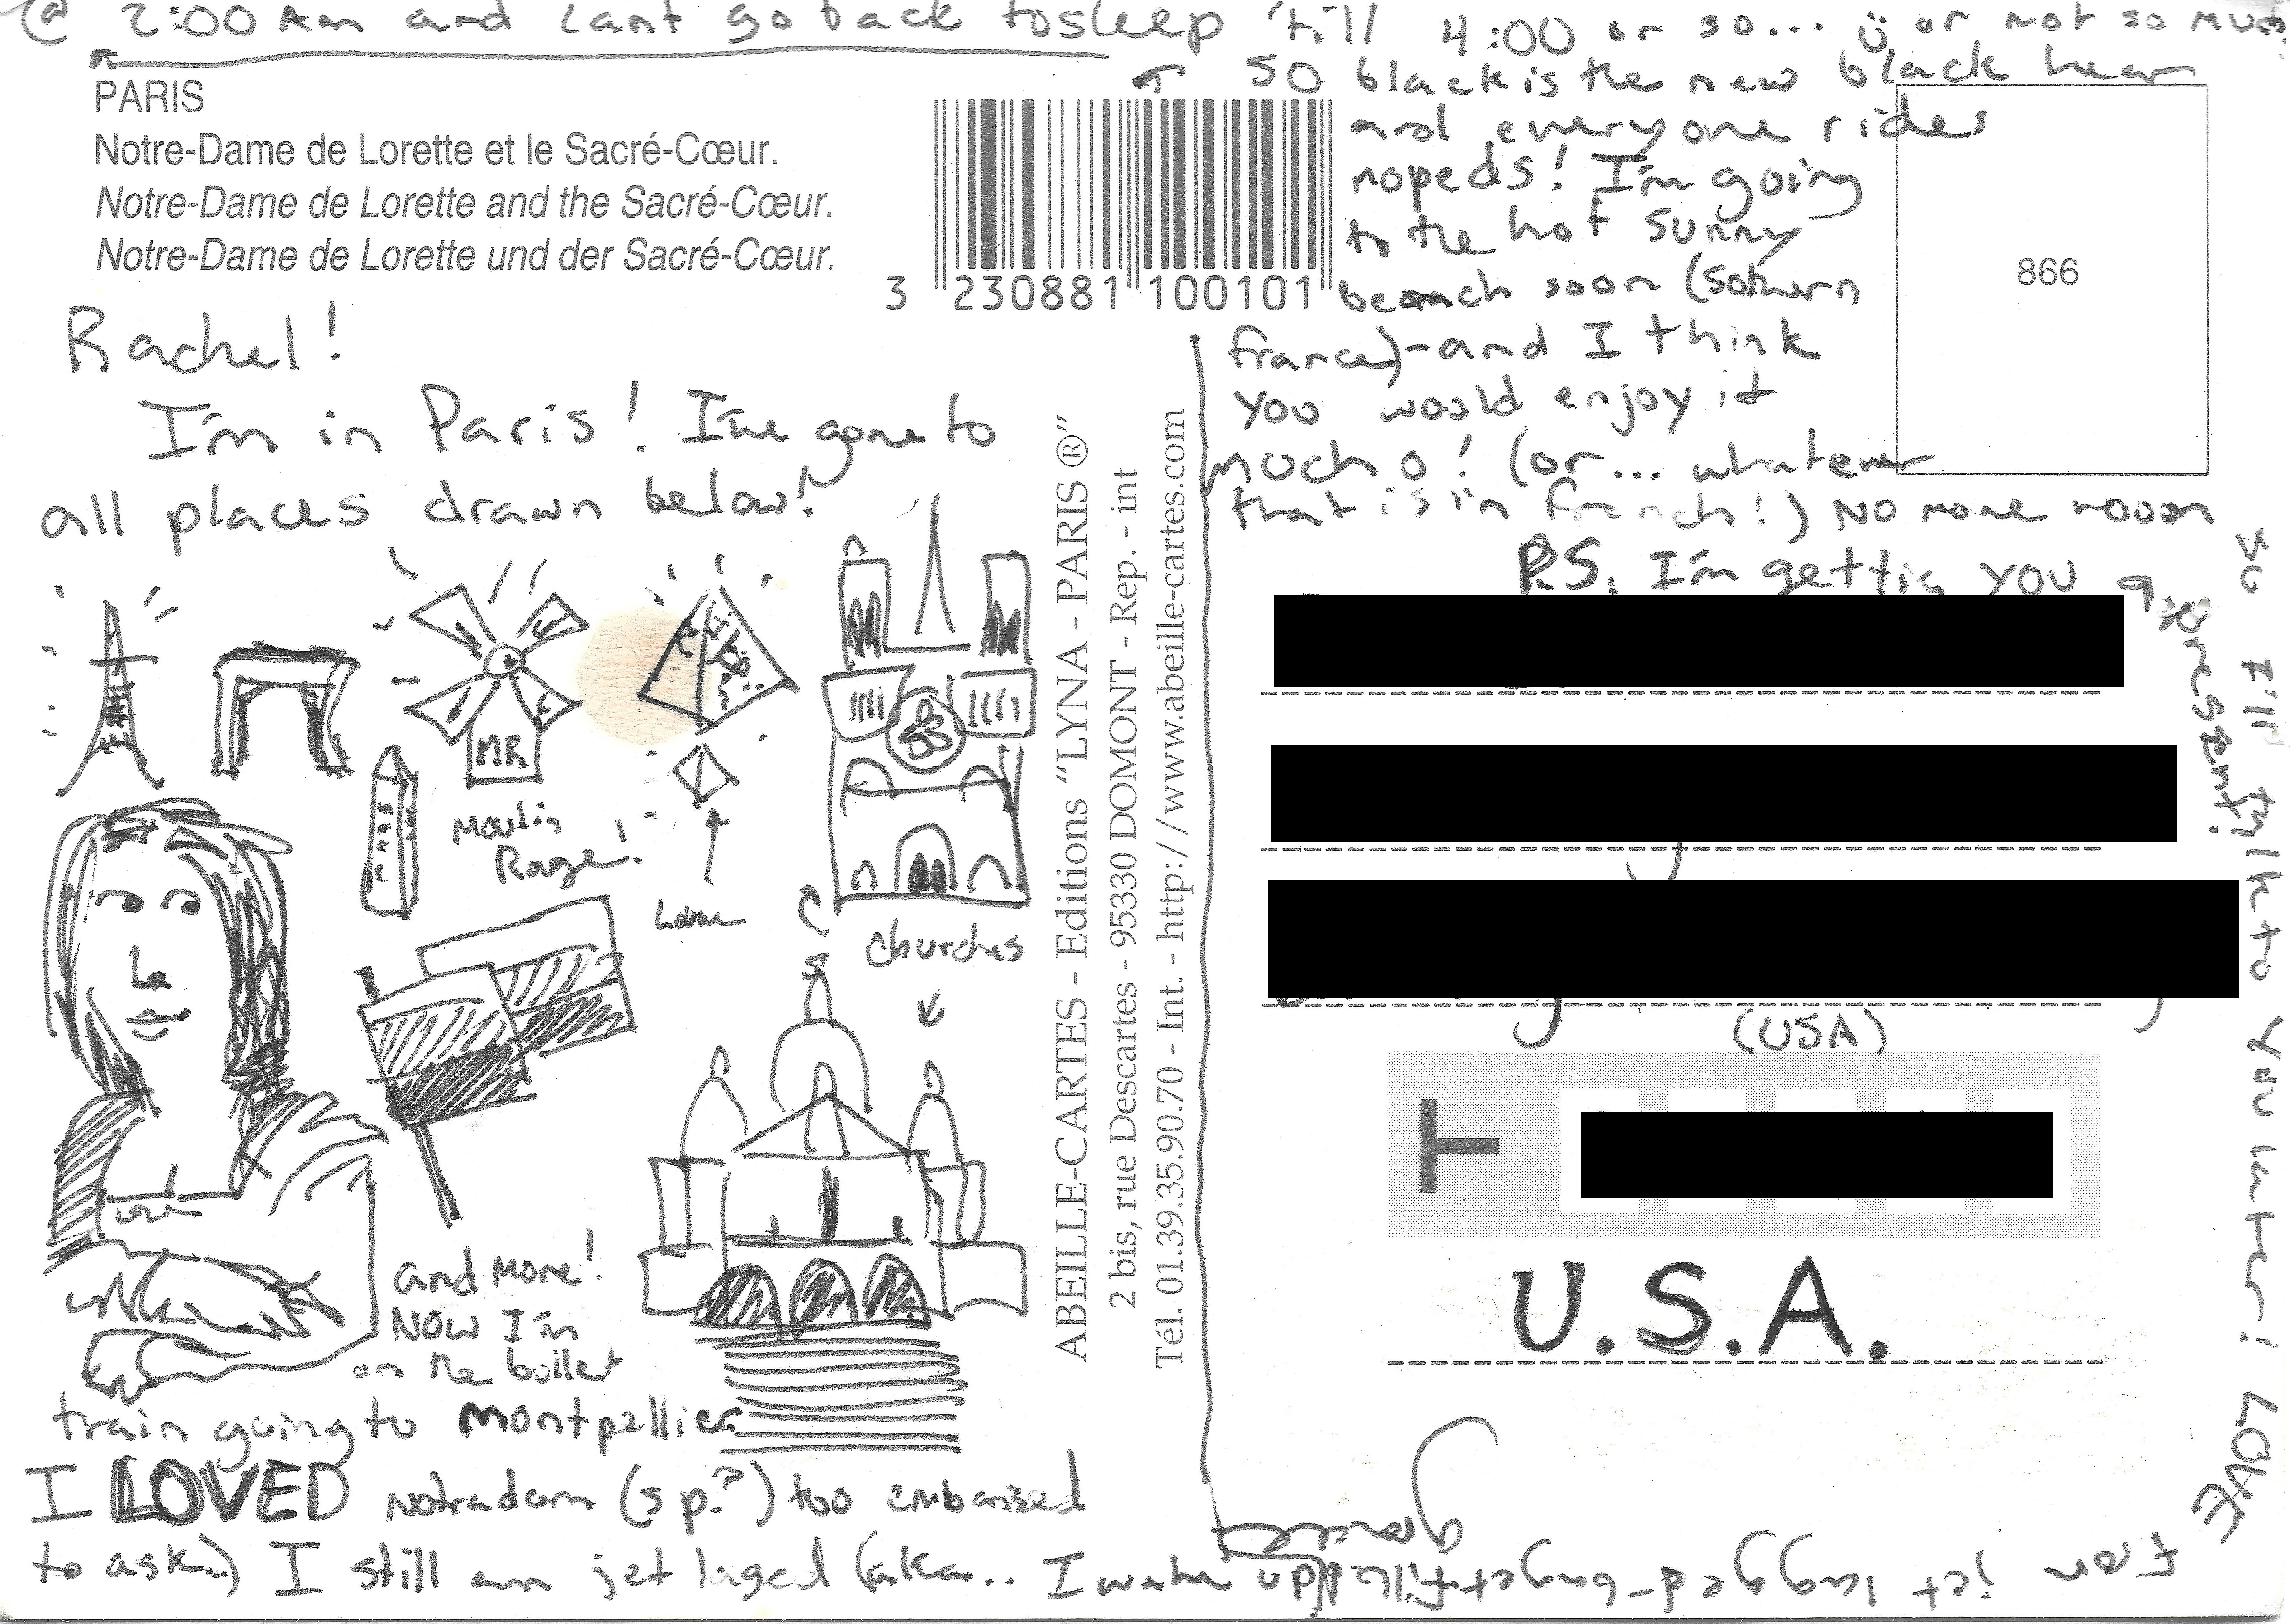 @ 2:00 Am and cant go back to sleep 'till 4:00 or so... or not so much.
PARIS
Notre-Dame de Lorette et le Sacré-Cœur.
Notre-Dame de Lorette and the Sacré-Cœur.
Notre-Dame de Lorette und der Sacré-Cœur.
3 230881 100101
SO black is the new black hear
and everyone rides
mopeds! I'm going
to the hot sunny
beach soon (sothern
france)-and I think
you would enjoy it
mucho! (or... whatever
that is in french!) No more room
so I'll talk to you later! LOVE
P.S. I'm gettig you a
present!
866
Rachel!
I'm in Paris! I've gone to
all places drawn below!
MR
Moulin
Rouge!
Louvre
churches
and more!
NOW I'm
on the bullet
train going to Montpellier
I LOVED Notradam (sp.?) too embarised
to ask..) I still am jet laged (aka.. I wake up
ABEILLE-CARTES - Editions "LYNA - PARIS ®"
2 bis, rue Descartes - 95330 DOMONT - Rep. - int
Tél. 01.39.35.90.70 - Int. - http://www.abeille-cartes.com
(USA)
T
U.S.A.